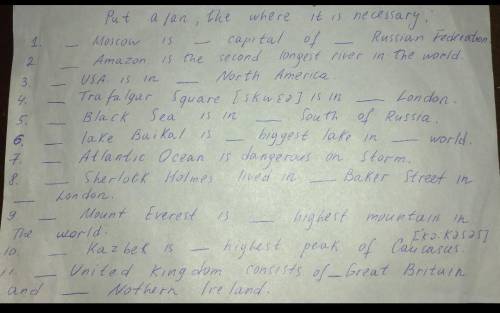 Put a/an, the where it is necessary.
1. _ Moscow is _ capital of _ Russian Federation
2 _ Amazon is the second longest river in the world.
3. _ USA is in _ North America
4. _ Trafalgar Square [skwɛə] is in _ London.
5. _ Black Sea is in _ South of Russia.
6. _ lake Baikal is _ biggest lake in _ world.
7. _ Atlantic Ocean is dangerous on storm.
8. _ Sherlock Holmes lived in _ Baker Street in
_ London.
9 _ Mount Everest is _ highest mountain in
The world.
[kɔ.kəsəs]
10. _ Kazbek is _ highest peak of Caucasus.
11. _ United Kingdom consists of _ Great Britain
and _ Nothern Ireland.